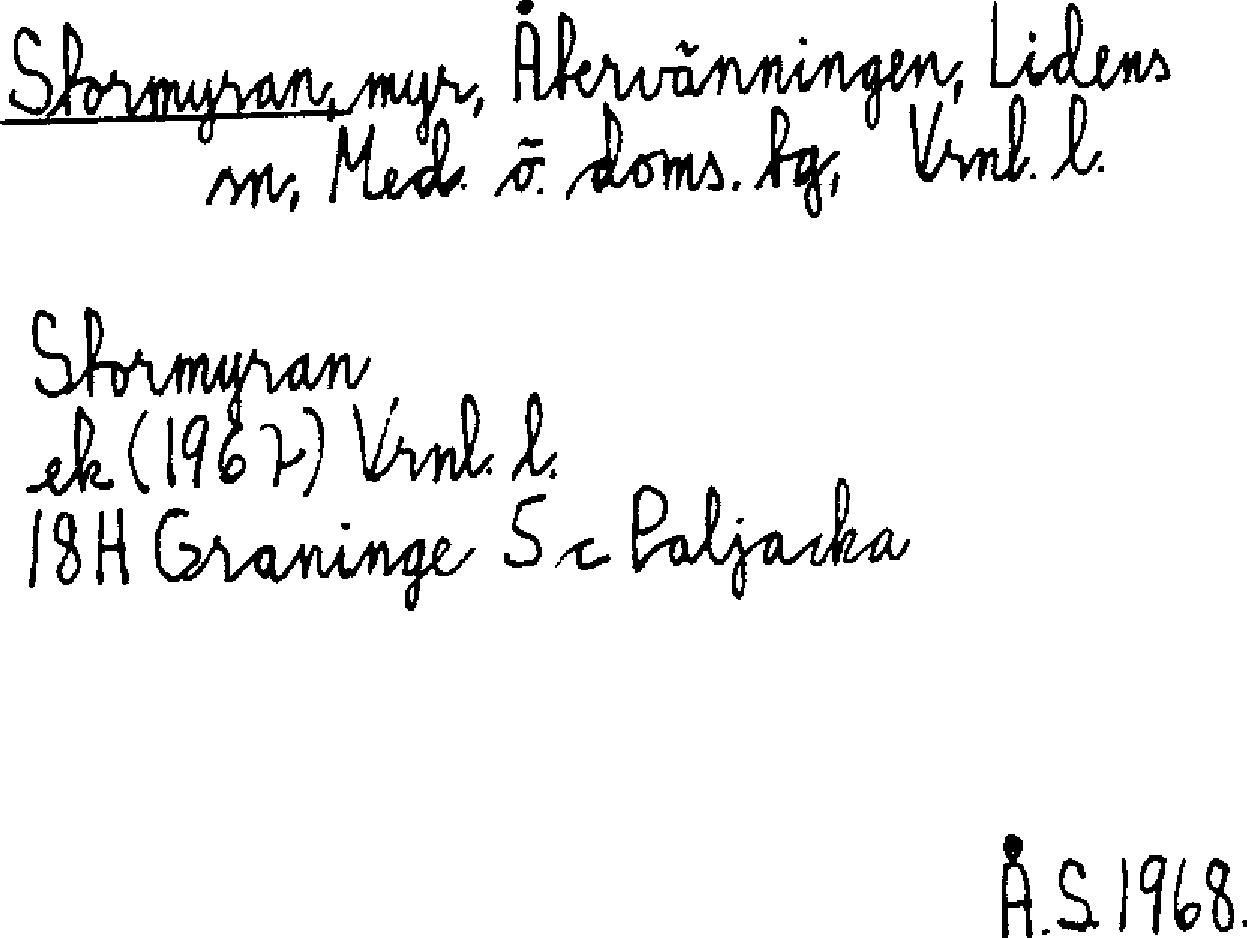 Stormyran, myr, Återvänningen, Lidens
sn, Med. ö. doms. tg, Vrnl. l.
Stormyran
ek (1967) Vrnl. l.
18H Graninge 5 c Paljacka
Å.S. 1968.